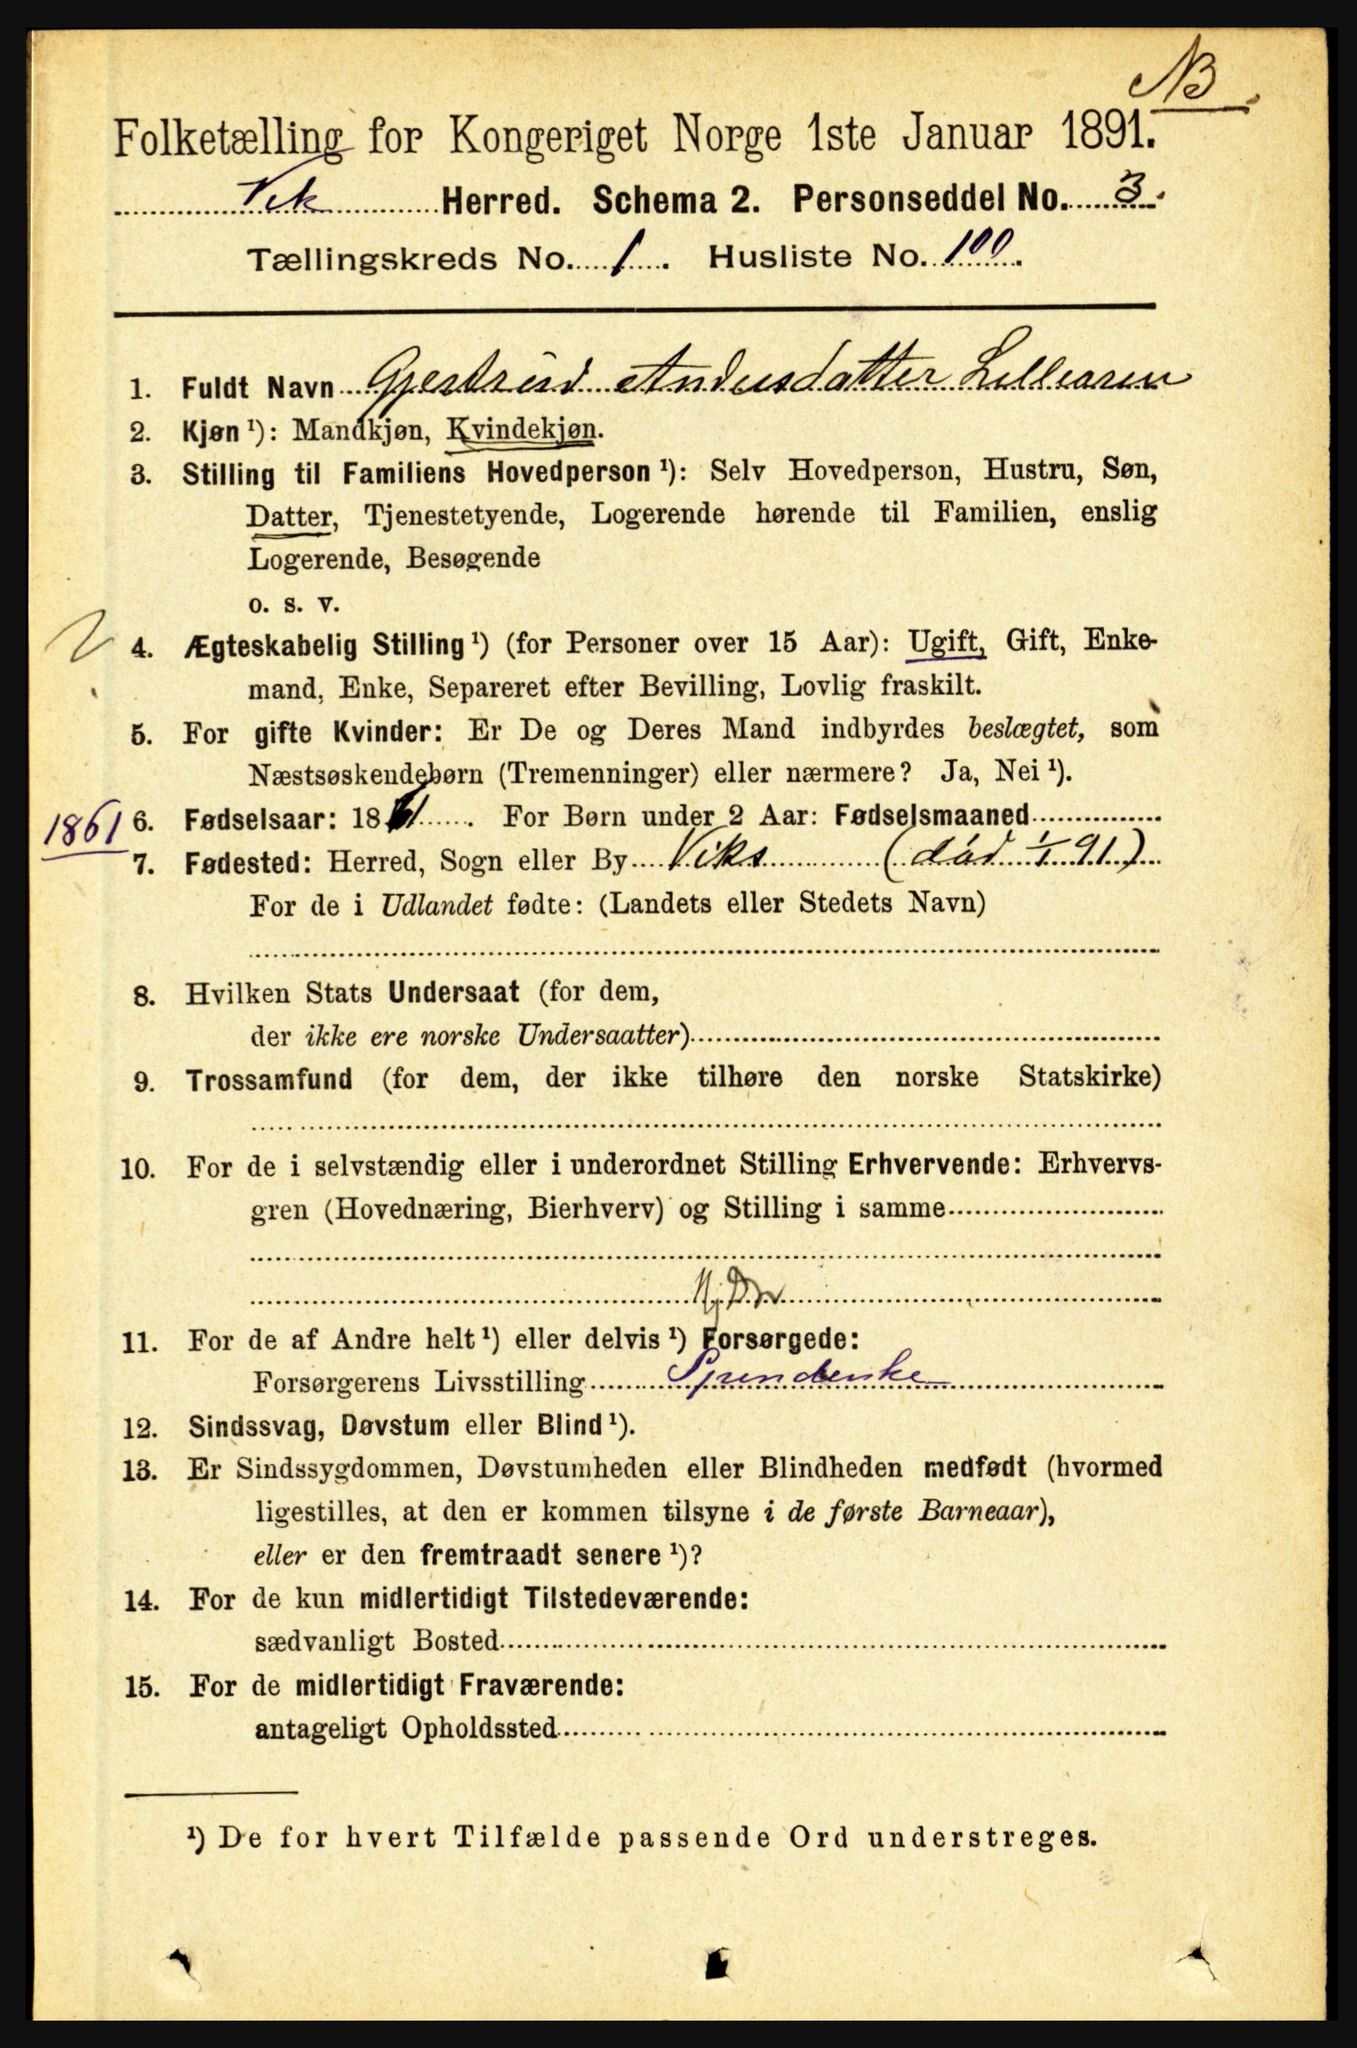 NB.
Folketælling for Kongeriget Norge 1ste Januar 1891.
Vik Herred. Schema 2. Personseddel No. 3.
Tællingskreds No. 1. Husliste No. 100.
1. Fuldt Navn Gjertrud Andersdatter Lillearen
2. Kjøn ¹): Mandkjøn, Kvindekjøn.
3. Stilling til Familiens Hovedperson ¹): Selv Hovedperson, Hustru, Søn,
Datter, Tjenestetyende, Logerende hørende til Familien, enslig
Logerende, Besøgende
o. s. v.
4. Ægteskabelig Stilling ¹) (for Personer over 15 Aar): Ugift, Gift, Enke-
mand, Enke, Separeret efter Bevilling, Lovlig fraskilt.
5. For gifte Kvinder: Er De og Deres Mand indbyrdes beslægtet, som
Næstsøskendebørn (Tremenninger) eller nærmere? Ja, Nei ¹).
1861 6. Fødselsaar: 1861. For Børn under 2 Aar: Fødselsmaaned
7. Fødested: Herred, Sogn eller By Viks (død 1/1 91)
For de i Udlandet fødte: (Landets eller Stedets Navn)
8. Hvilken Stats Undersaat (for dem,
der ikke ere norske Undersaatter)
9. Trossamfund (for dem, der ikke tilhøre den norske Statskirke)
10. For de i selvstændig eller i underordnet Stilling Erhvervende: Erhvervs-
gren (Hovednæring, Bierhverv) og Stilling i samme
11. For de af Andre helt ¹) eller delvis ¹) Forsørgede:
Forsørgerens Livsstilling
12. Sindssvag, Døvstum eller Blind ¹).
13. Er Sindssygdommen, Døvstumheden eller Blindheden medfødt (hvormed
ligestilles, at den er kommen tilsyne i de første Barneaar),
eller er den fremtraadt senere ¹)?
14. For de kun midlertidigt Tilstedeværende:
sædvanligt Bosted
15. For de midlertidigt Fraværende:
antageligt Opholdssted
¹) De for hvert Tilfælde passende Ord understreges.